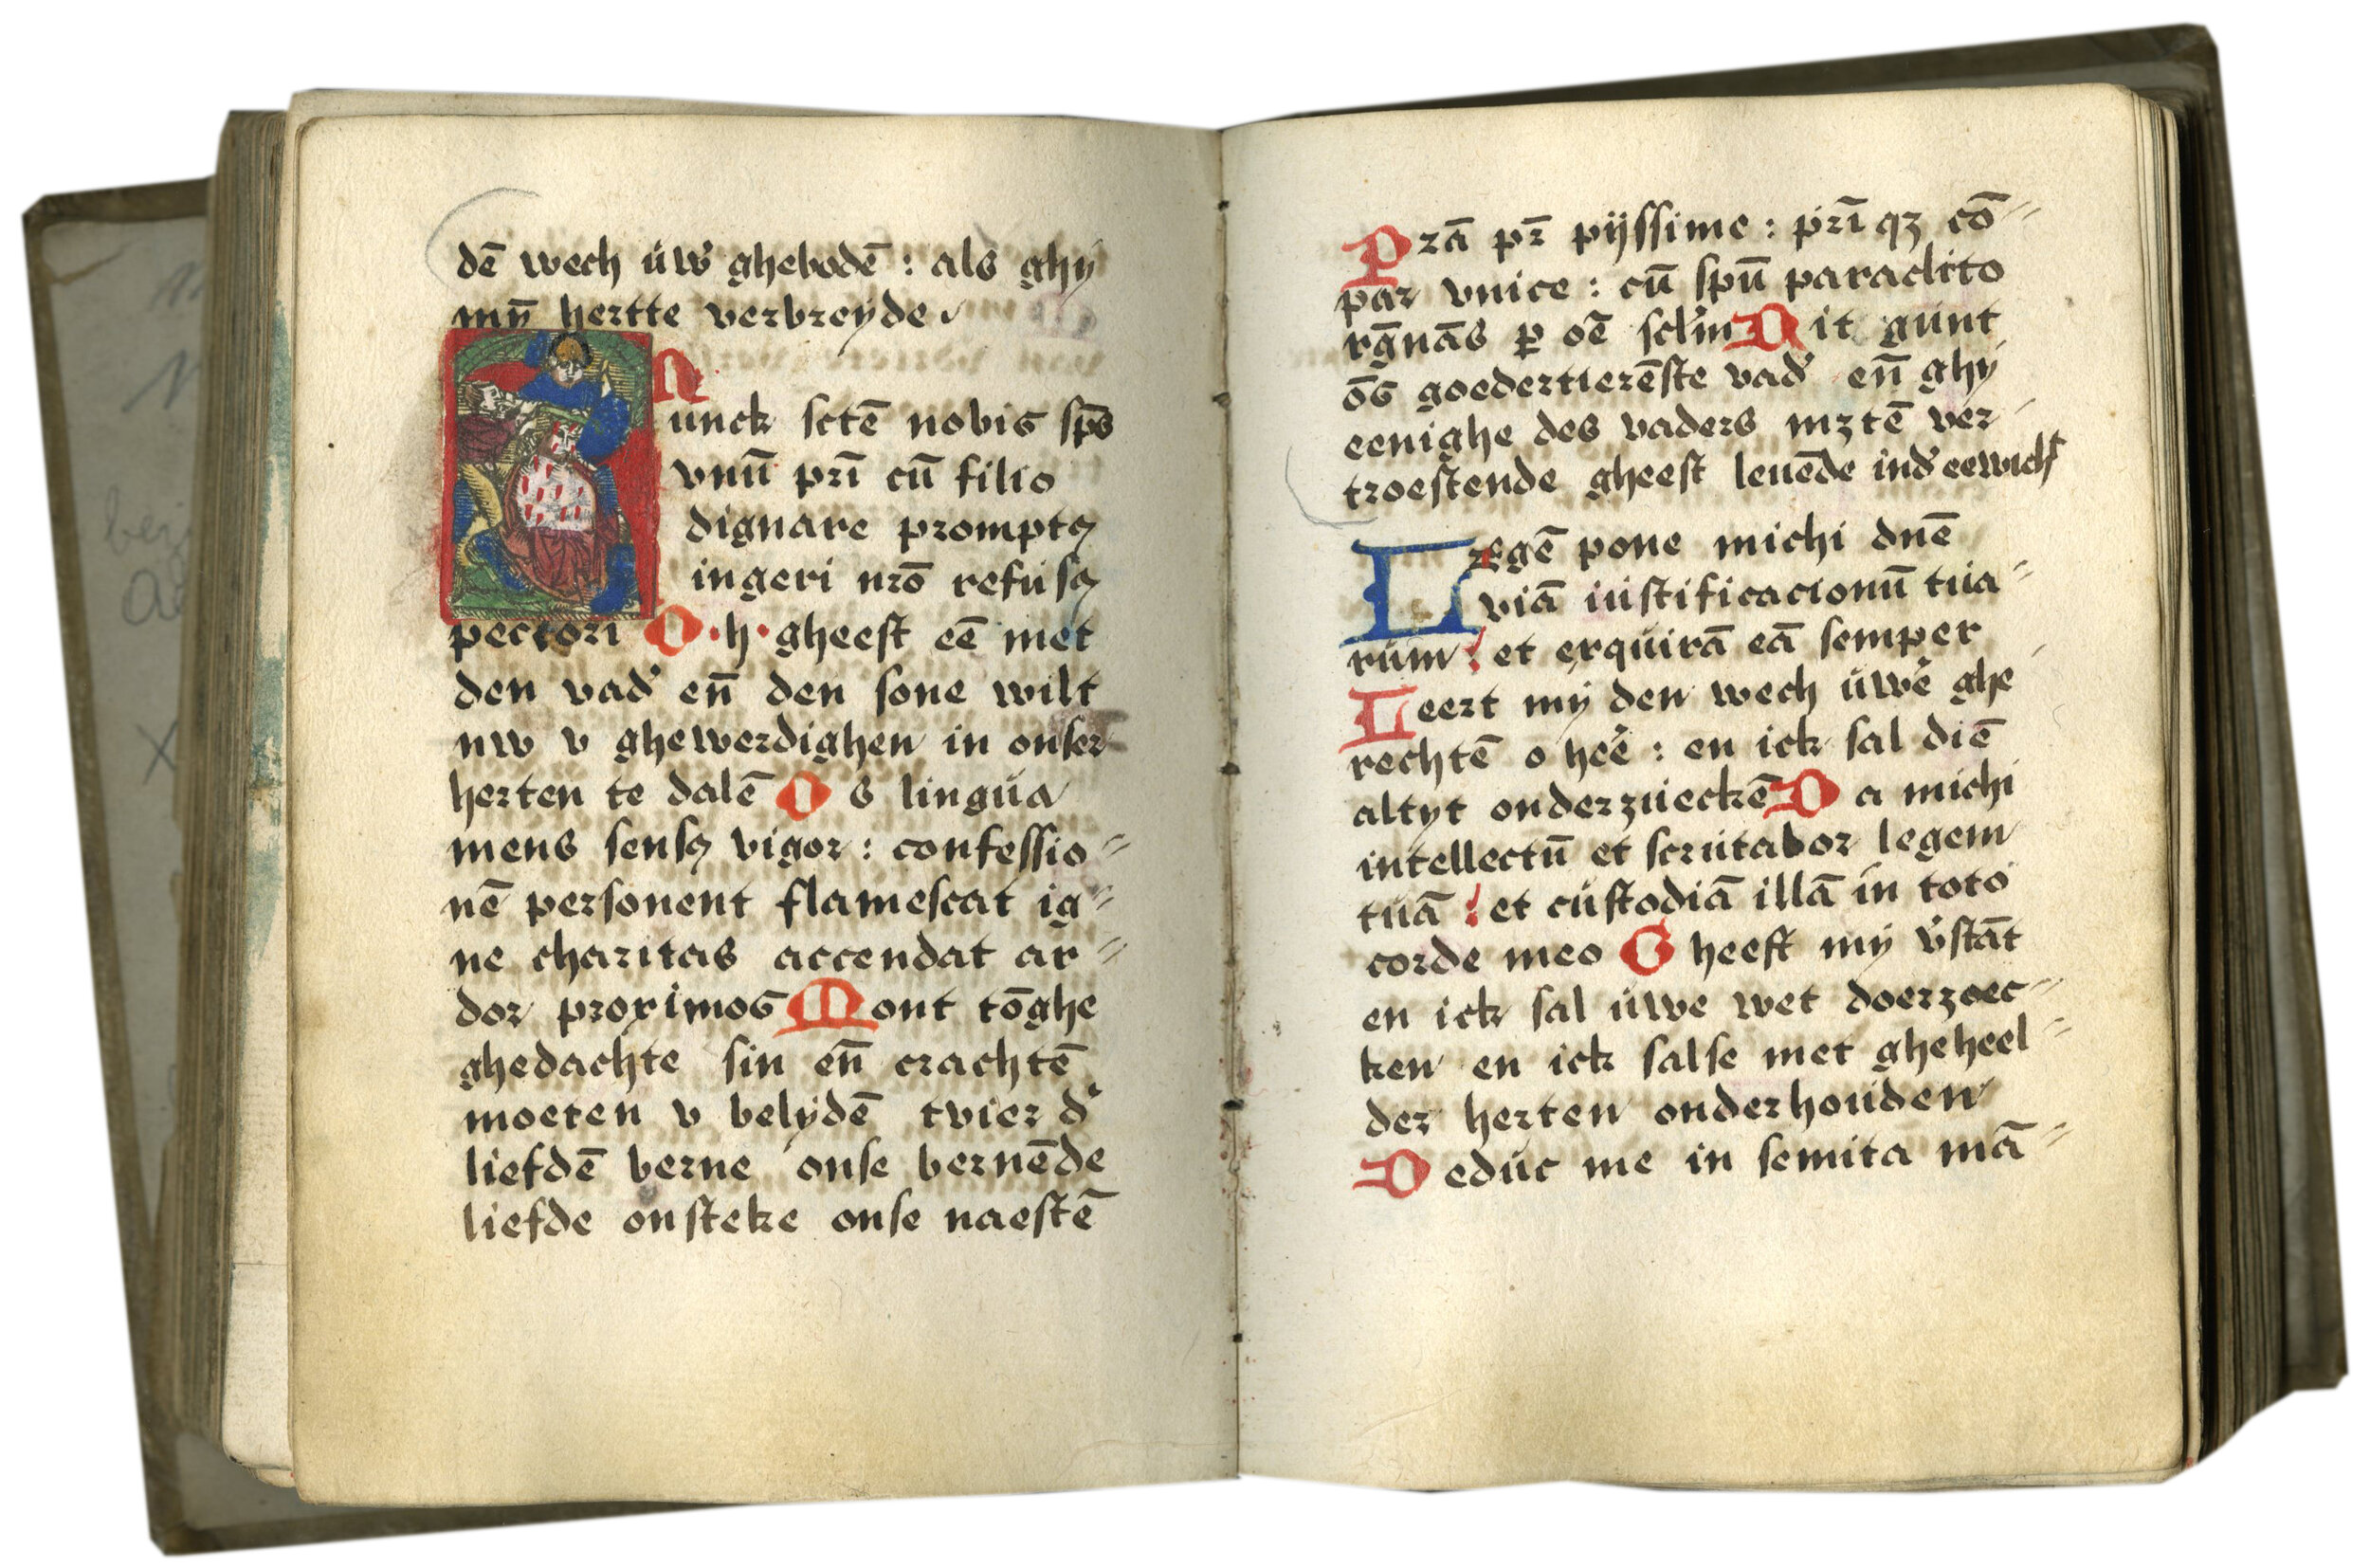 dē wech uw̉ ghebodē : als ghy
mȳ hertte verbreyde
N
unck sctē nobis sp̄s
vnū pr̄i cū filio
dignare promptꝯ
ingeri nr̄o refusꝯ
pectori O · h · gheest eē met
den vad̉ en̄ den sone wilt
nw v ghewerdighen in onser
herten te dalē O s lingua
mens sensꝯ vigor : confessio⸗
nē personent flamescat ig⸗
ne charitas accendat ar⸗
dor proximos Mont tōghe
ghedachte sin en̄ crachtē
moeten v belydē tvier d̉
liefdē berne onse bernēde
liefde onsteke onse naestē
Przā pr̄ pijssime : pr̄i qꝫ cō⸗
par vnice : cū spū paraclito
rḡnās ꝑ oē sclm̉ Dit gunt
ōs goedertierēste vad̉ en̄ ghy
eenighe des vaders mꝫ tē ver⸗
troestende gheest leuēde ind̉ eewich̉t
Legē pone michi dn̄e
viā iustificacionū tua⸗
rum : et exquirā eā semper
Leert my den wech uwe̓ ghe⸗
rechtē o hee̓ : en ick sal diē
altyt onderzueckē Da michi
intellectū et scrutabor legem
tuā : et custodiā illā in toto
corde meo Gheeft my v̓stāt
en ick sal uwe wet doerzoec⸗
ken en ick salse met gheheel⸗
der herten onderhouden
Deduc me in semita mā⸗